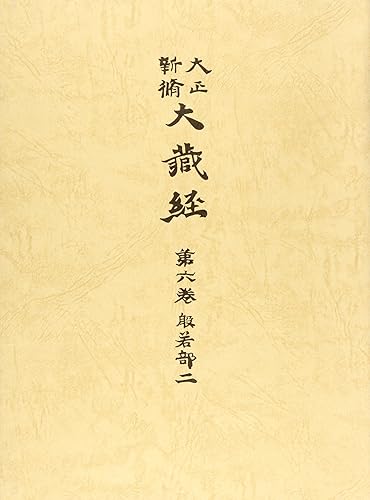 大正
新脩
大藏経
第六巻 般若部二